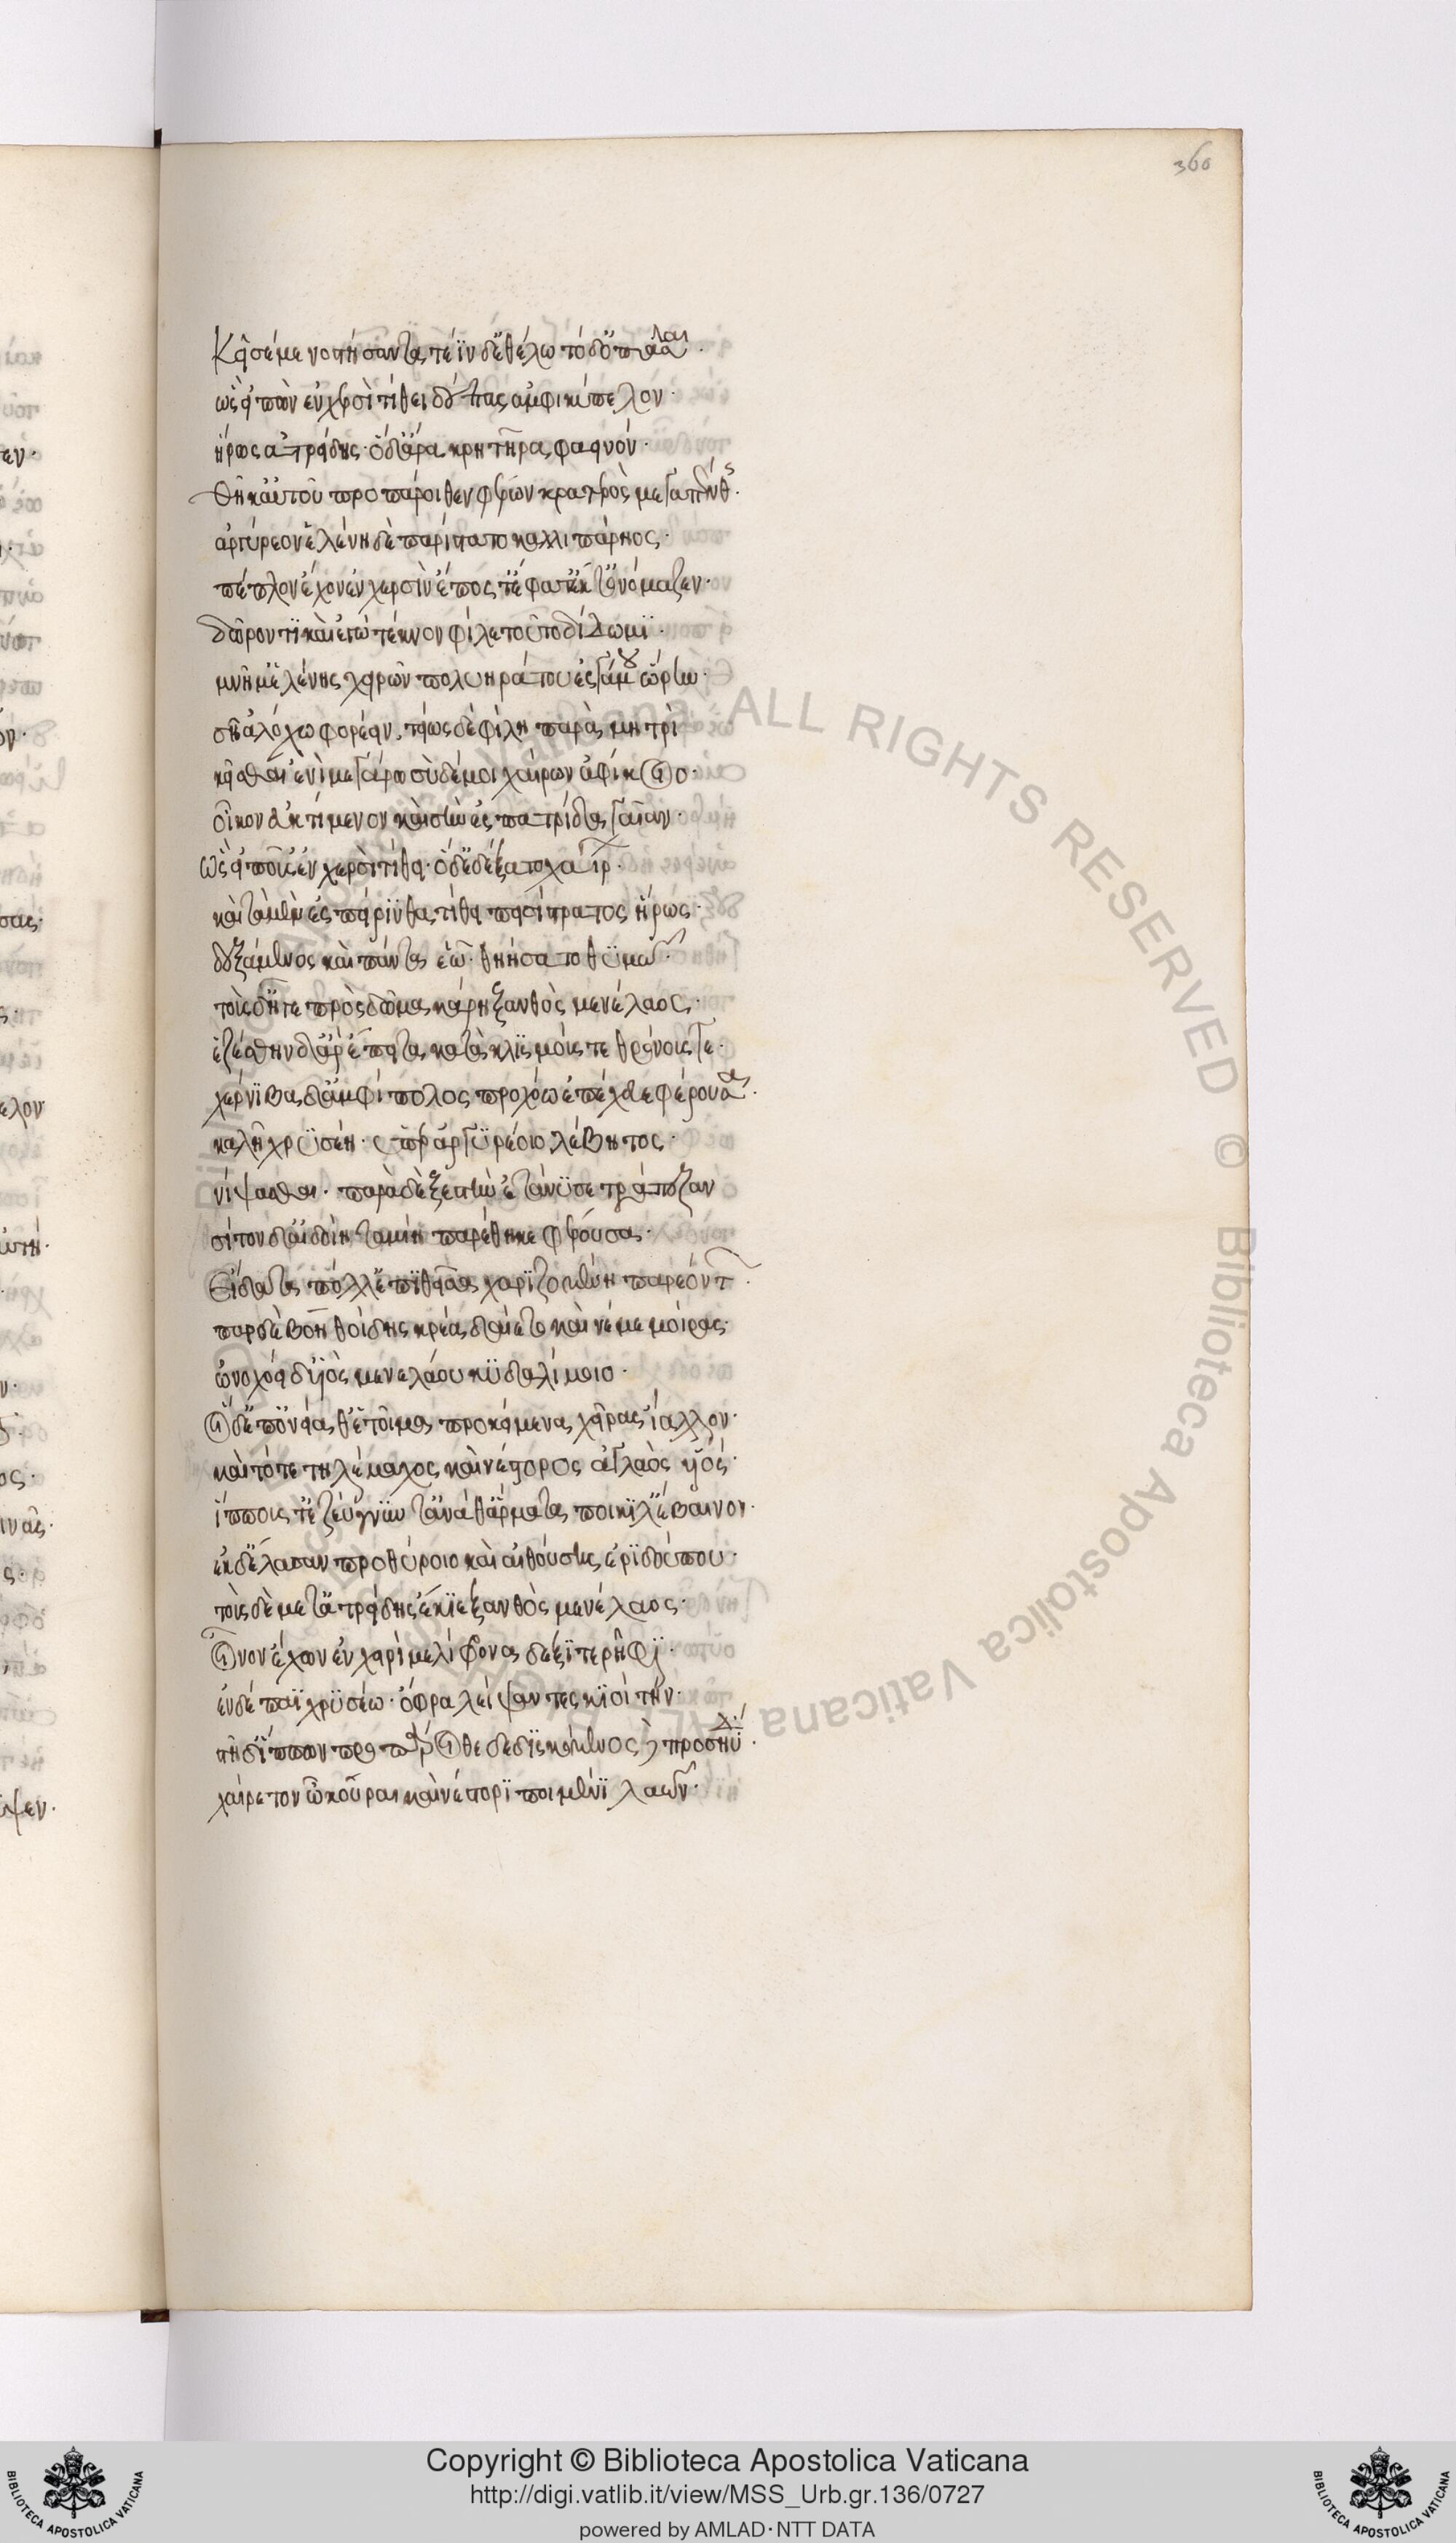 Κεῖσέ με νοστήσαντα τεῒν δ' ἐθέλω τόδ' ὀπάσσαι·
ὣς εἰπὼν ἐν χερσὶ τίθει δέπας ἀμφικύπελον·
ἥρως ἀτρείδης· ὁ δ' ἄρα κρητῆρα φαεινόν·
Θῆκ' αὐτοῦ προπάροιθεν φέρων κρατερὸς μεγαπένθης·
ἀργύρεον ἑλένη δὲ παρίστατο καλλιπάρηος·
πέπλον ἔχον ἐν χερσὶν ἔπος τ' ἔφατ' ἔκ τ' ὀνόμαζεν·
δῶρον τϊ καὶ ἐγὼ τέκνον φίλε τοῦτο δίδωμϊ·
μνῆμ' ἑλένης χειρῶν πολυηράτου ἐς γάμου ὥρην·
σῆ ἀλόχω φορέειν, τείως δὲ φίλη παρὰ μητρὶ
κεῖσθαι ἐνὶ μεγάρω σὺ δέ μοι χαίρων ἀφίκοιο·
οἶκον ἐυκτίμενον καὶ σὴν ἐς πατρίδα γαῖαν·
ὣς εἰποῦσ' ἐν χερσὶ τίθει· ὁ δ' ἐδέξατο χαίρων·
καὶ τὰ μὲν ἐς πείρϊνθα τίθει πεισίστρατος ἥρως·
δεξάμενος καὶ πάντα ἑῶ· θηήσατο θϋμῶ·
τοὺς δ' ἦγε πρὸς δῶμα κάρη ξανθὸς μενέλαος·
ἑζέσθην δ' ἄρ' ἔπειτα κατὰ κλϊσμούς τε θρόνους γε·
χέρνϊβα δ' ἀμφίπολος προχόω ἐπέχευε φέρουσα·
καλῆ χρϋσέη· ὑπὲρ ἀργϋρέοιο λέβητος·
νίψασθαι· παρὰ δὲ ξεστὴν ἐτάνϋσε τράπεζαν
σίτον δ' αἰδοίη ταμίη παρέθηκε φέρουσα·
Εἴδατα πόλλ' ἐπϊθεῖσα χαρϊζομένη παρεόντων·
παρ δὲ βοηθοίδης κρέα δαίετο καὶ νέμε μοίρας·
ὠνοχόει δ' υἱὸς μενελάου κϋδαλίμοιο·
οἱ δ' ἐπ' ὀνείαθ' ἑτοῖμα προκείμενα χεῖρας ἴαλλον·
καὶ τότε τηλέμαχος καὶ νέστορος ἀγλαὸς υἱός·
ἵππους τ' ἐζεύγνϋν τ' ἀνά θ' ἅρματα ποικϊλ' ἔβαινον·
ἐκ δ' ἔλασαν προθύροιο καὶ αἰθούσης ἐρϊδούπου·
τοὺς δὲ μετ' ἀτρείδης ἔκϊε ξανθὸς μενέλαος·
οἶνον ἔχων ἐν χειρὶ μελίφρονα δεξϊτερῆφϊ·
ἐν δέπαϊ χρϋσέω· ὄφρα λείψαντες κϊοίτην·
στῆ δ' ἵππων προπάροιθε δεδϊσκόμενος δὲ προσηύδα·
χαίρετον ὦ κοῦροι καὶ νέστορϊ ποιμένϊ λαῶν·
360
Copyright © Biblioteca Apostolica Vaticana
http://digi.vatlib.it/view/MSS_Urb.gr.136/0727
powered by AMLAD·NTT DATA